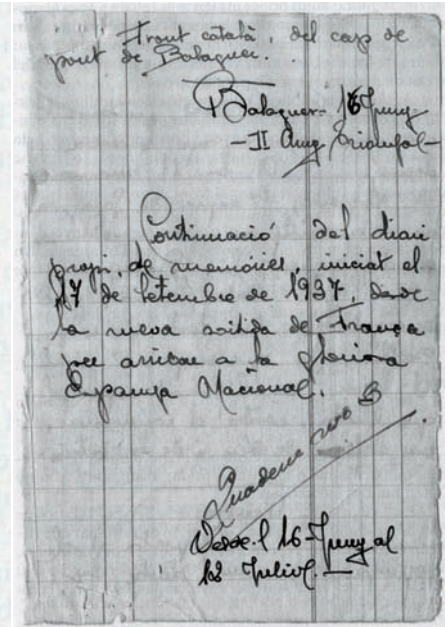 Front català, del cap de
pont de Balaguer.
Balaguer 16 Juny
- II Any Triomfal -
Continuació del diari
propi, de memóries, iniciat el
17 de Setembre de 1937, desde
la meva sortida de França
per arribar a la gloriosa
Espanya Nacional.
Quadern nº 3
Desde l 16-Juny al
18 Juliol. -